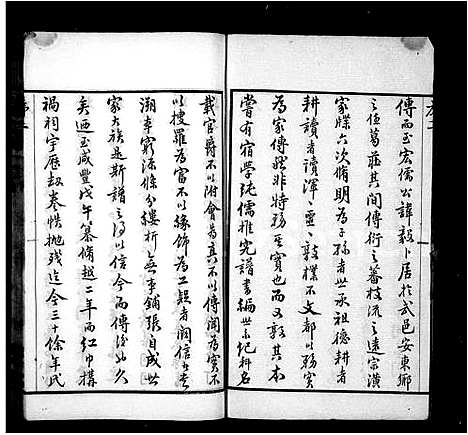 傳而至宏儒公諱毅卜居於武邑安東鄉
之後葛莊其間傳衍之蕃枝流之遠宗潢
家牒六次脩明為子孫者世承祖德耕者
耕讀者讀渾渾噩噩敦樸不文都以務實
為家傳然非特務其實也而又敦其本
嘗有宿學純儒推究譜書編世系紀科名
載官爵不以附會為真不以傳聞為實不
以搜羅為富不以緣飾為工疑者闕信者
溯本窮源條分縷析無事鋪張自成世
家大族是斯譜之得以信今而傳後也久
矣迺至咸豐戊午纂脩越二年而紅巾構
禍祠宇歷劫卷帙拋殘迄今三十餘年氏